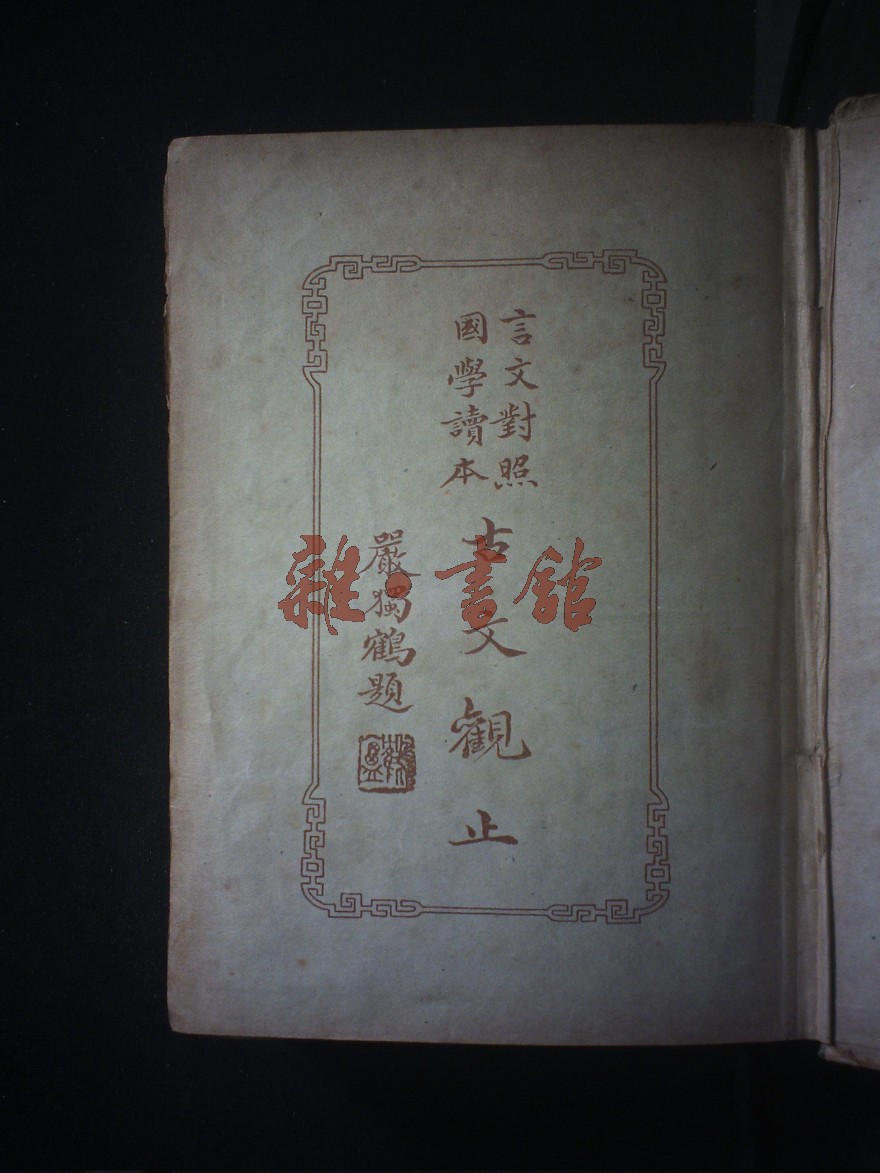 言文對照
國學讀本
古文觀止
嚴獨鶴題
雜·書館